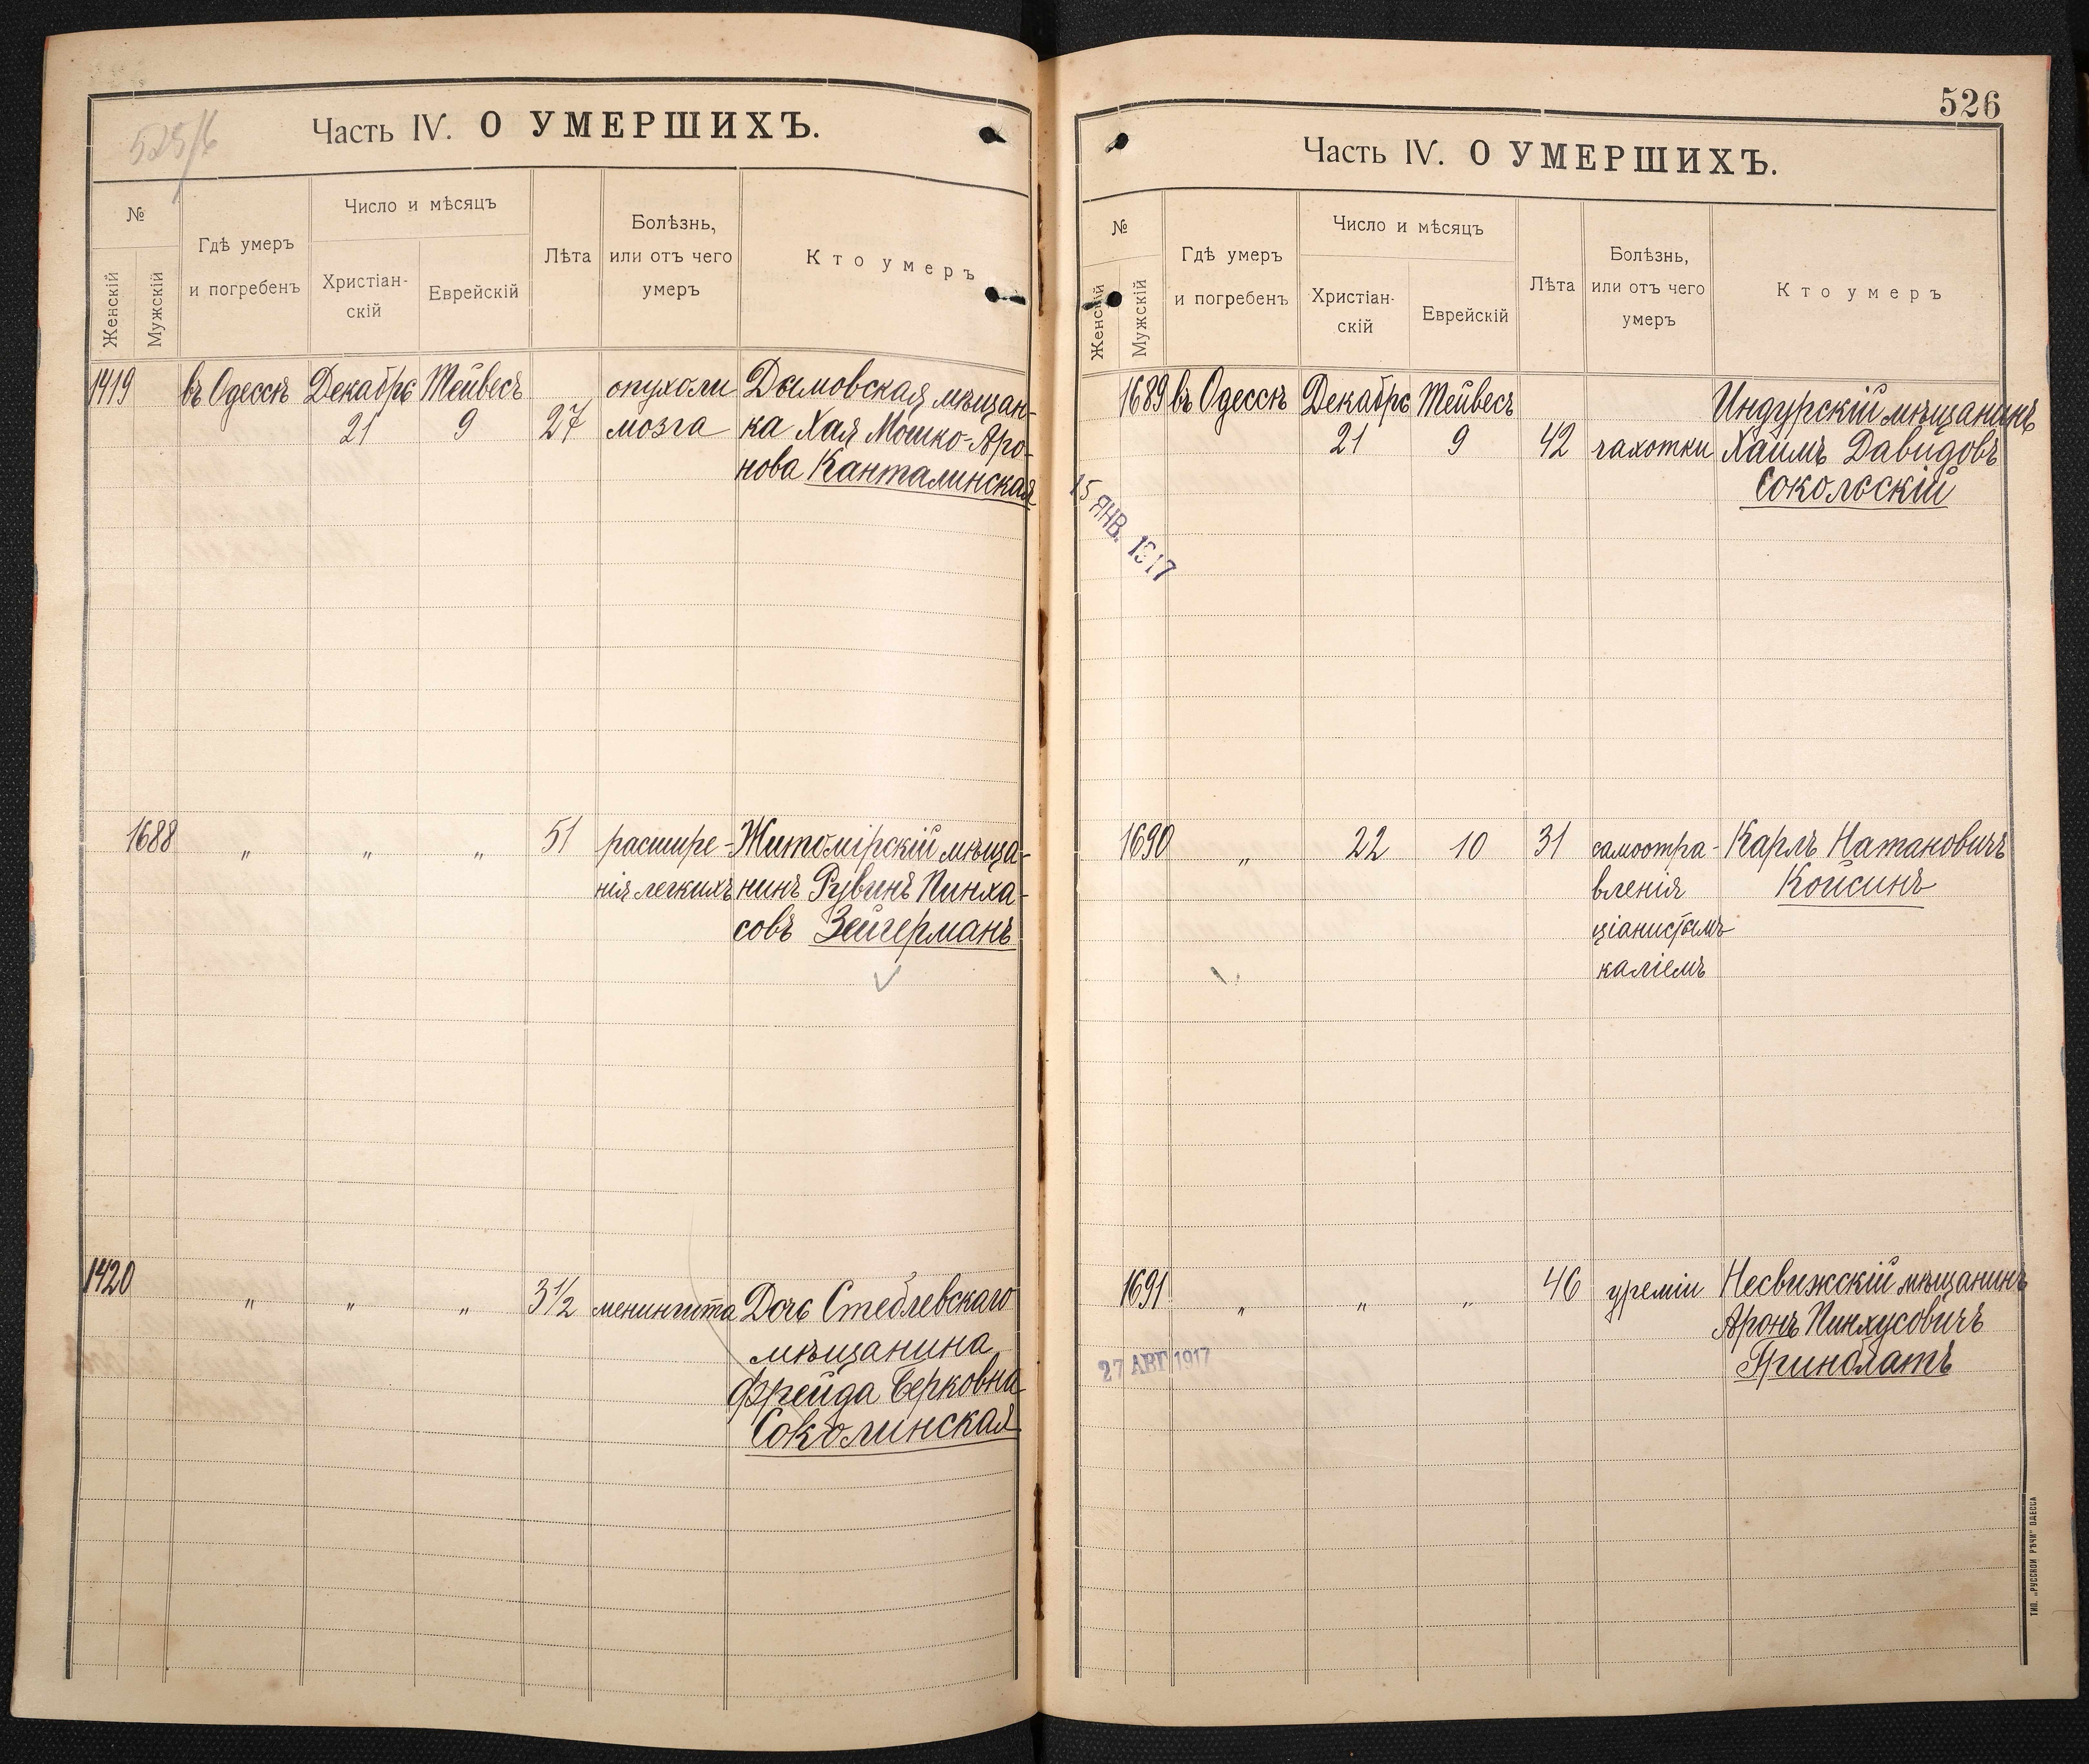 525/6
Часть IV. О УМЕРШИХЪ.
№
Женскій
Мужскій
Гдѣ умеръ
и погребенъ
Число и мѣсяцъ
Христіан-
скій
Еврейскій
Лѣта
Болѣзнь,
или отъ чего
умеръ
Кто умеръ
1419 въ Одессѣ Декабрь Тейвесъ опухоли Дымовская мѣщан-
21 9 27 мозга ка Хая Мошко-Аро-
нова Канталинская
1688 " " " 51 расшире- Житомірскій мѣща-
нія легкихъ нинъ Рувинъ Пинха-
совъ Зейгерманъ
1420 " " " 3½ менингита Дочь Стеблевскаго
мѣщанина
Фрейда Берковна
Соколинская
526
Часть IV. О УМЕРШИХЪ.
№
Женскій
Мужскій
Гдѣ умеръ
и погребенъ
Число и мѣсяцъ
Христіан-
скій
Еврейскій
Лѣта
Болѣзнь,
или отъ чего
умеръ
Кто умеръ
1689 въ Одессѣ Декабрь Тейвесъ Индурскій мѣщанинъ
21 9 42 чахотки Хаимъ Давидовъ
Сокольскій
15 ЯНВ. 1917
1690 " 22 10 31 самоотра- Карлъ Натановичъ
вленія Койсинъ
ціанистымъ
каліемъ
1691 " " " 46 уреміи Несвижскій мѣщанинъ
Аронъ Пинхусовичъ
Гринблатъ
27 АВГ 1917
ТИП. „РУССКОЙ РѢЧИ" ОДЕССА